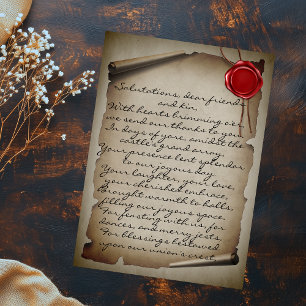 Salutations, dear friends
and kin,
With hearts brimming o'er,
we send our thanks to you
In days of yore, amidst the
castle's grand array,
Your presence lent splendor
to our joyous day.
Your laughter, your love,
your cherished embrace,
Brought warmth to halls,
filling our joyous space.
For feasting with us, for
dances, and merry jests,
For blessings bestowed
upon our union's crest,